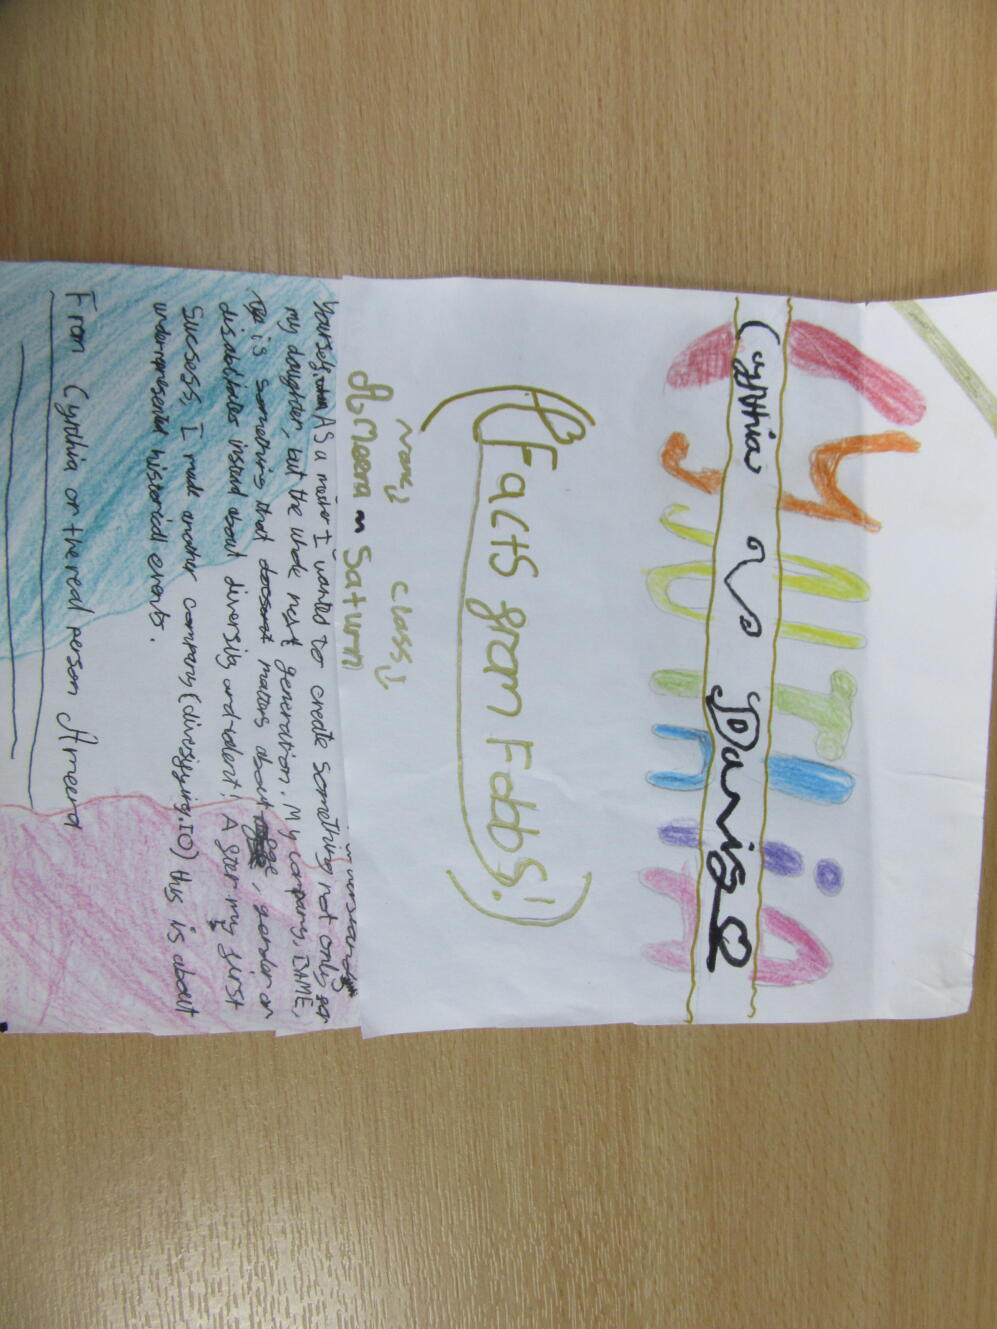 CyNthiA
Cynthia Davis
(Facts from Fabbs!)
name↓ class↓
Ameera in Saturn
yourself AS a mother I wanted to create something not only for
my daughter, but the whole next generation. My company, BAME,
is something that doesnt matters about age, gender or
disabilities instead about diversity and talent! After my first
Sucsess, I made another company (diversifying.IO) this is about
underrepresented historical events.
From Cynthia or the real person Ameera